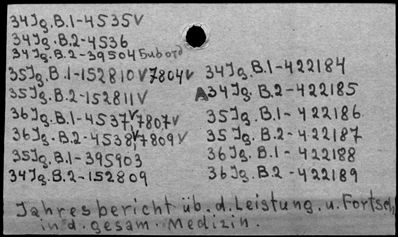 34Jg.B.1-4535V
34Jg.B.2-4536
34Jg.B.2-39504
35Jg.B.1-152810V7804V
35Jg.B.2-152811V
36Jg.B.1-4537V7807V
36Jg.B.2-4538V7809V
35Jg.B.1-395903
34Jg.B.2-152809
34Jg.B.1-422184
A34Jg.B.2-422185
35Jg.B.1-422186
35Jg.B.2-422187
36Jg.B.1-422188
36Jg.B.2-422189
Jahresbericht üb.d.Leistung.u.Fortsch
in d.gesam.Medizin.